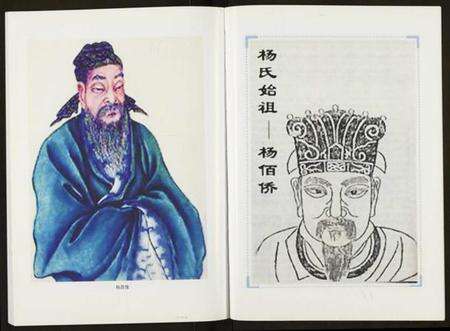 杨氏始祖——杨佰侨